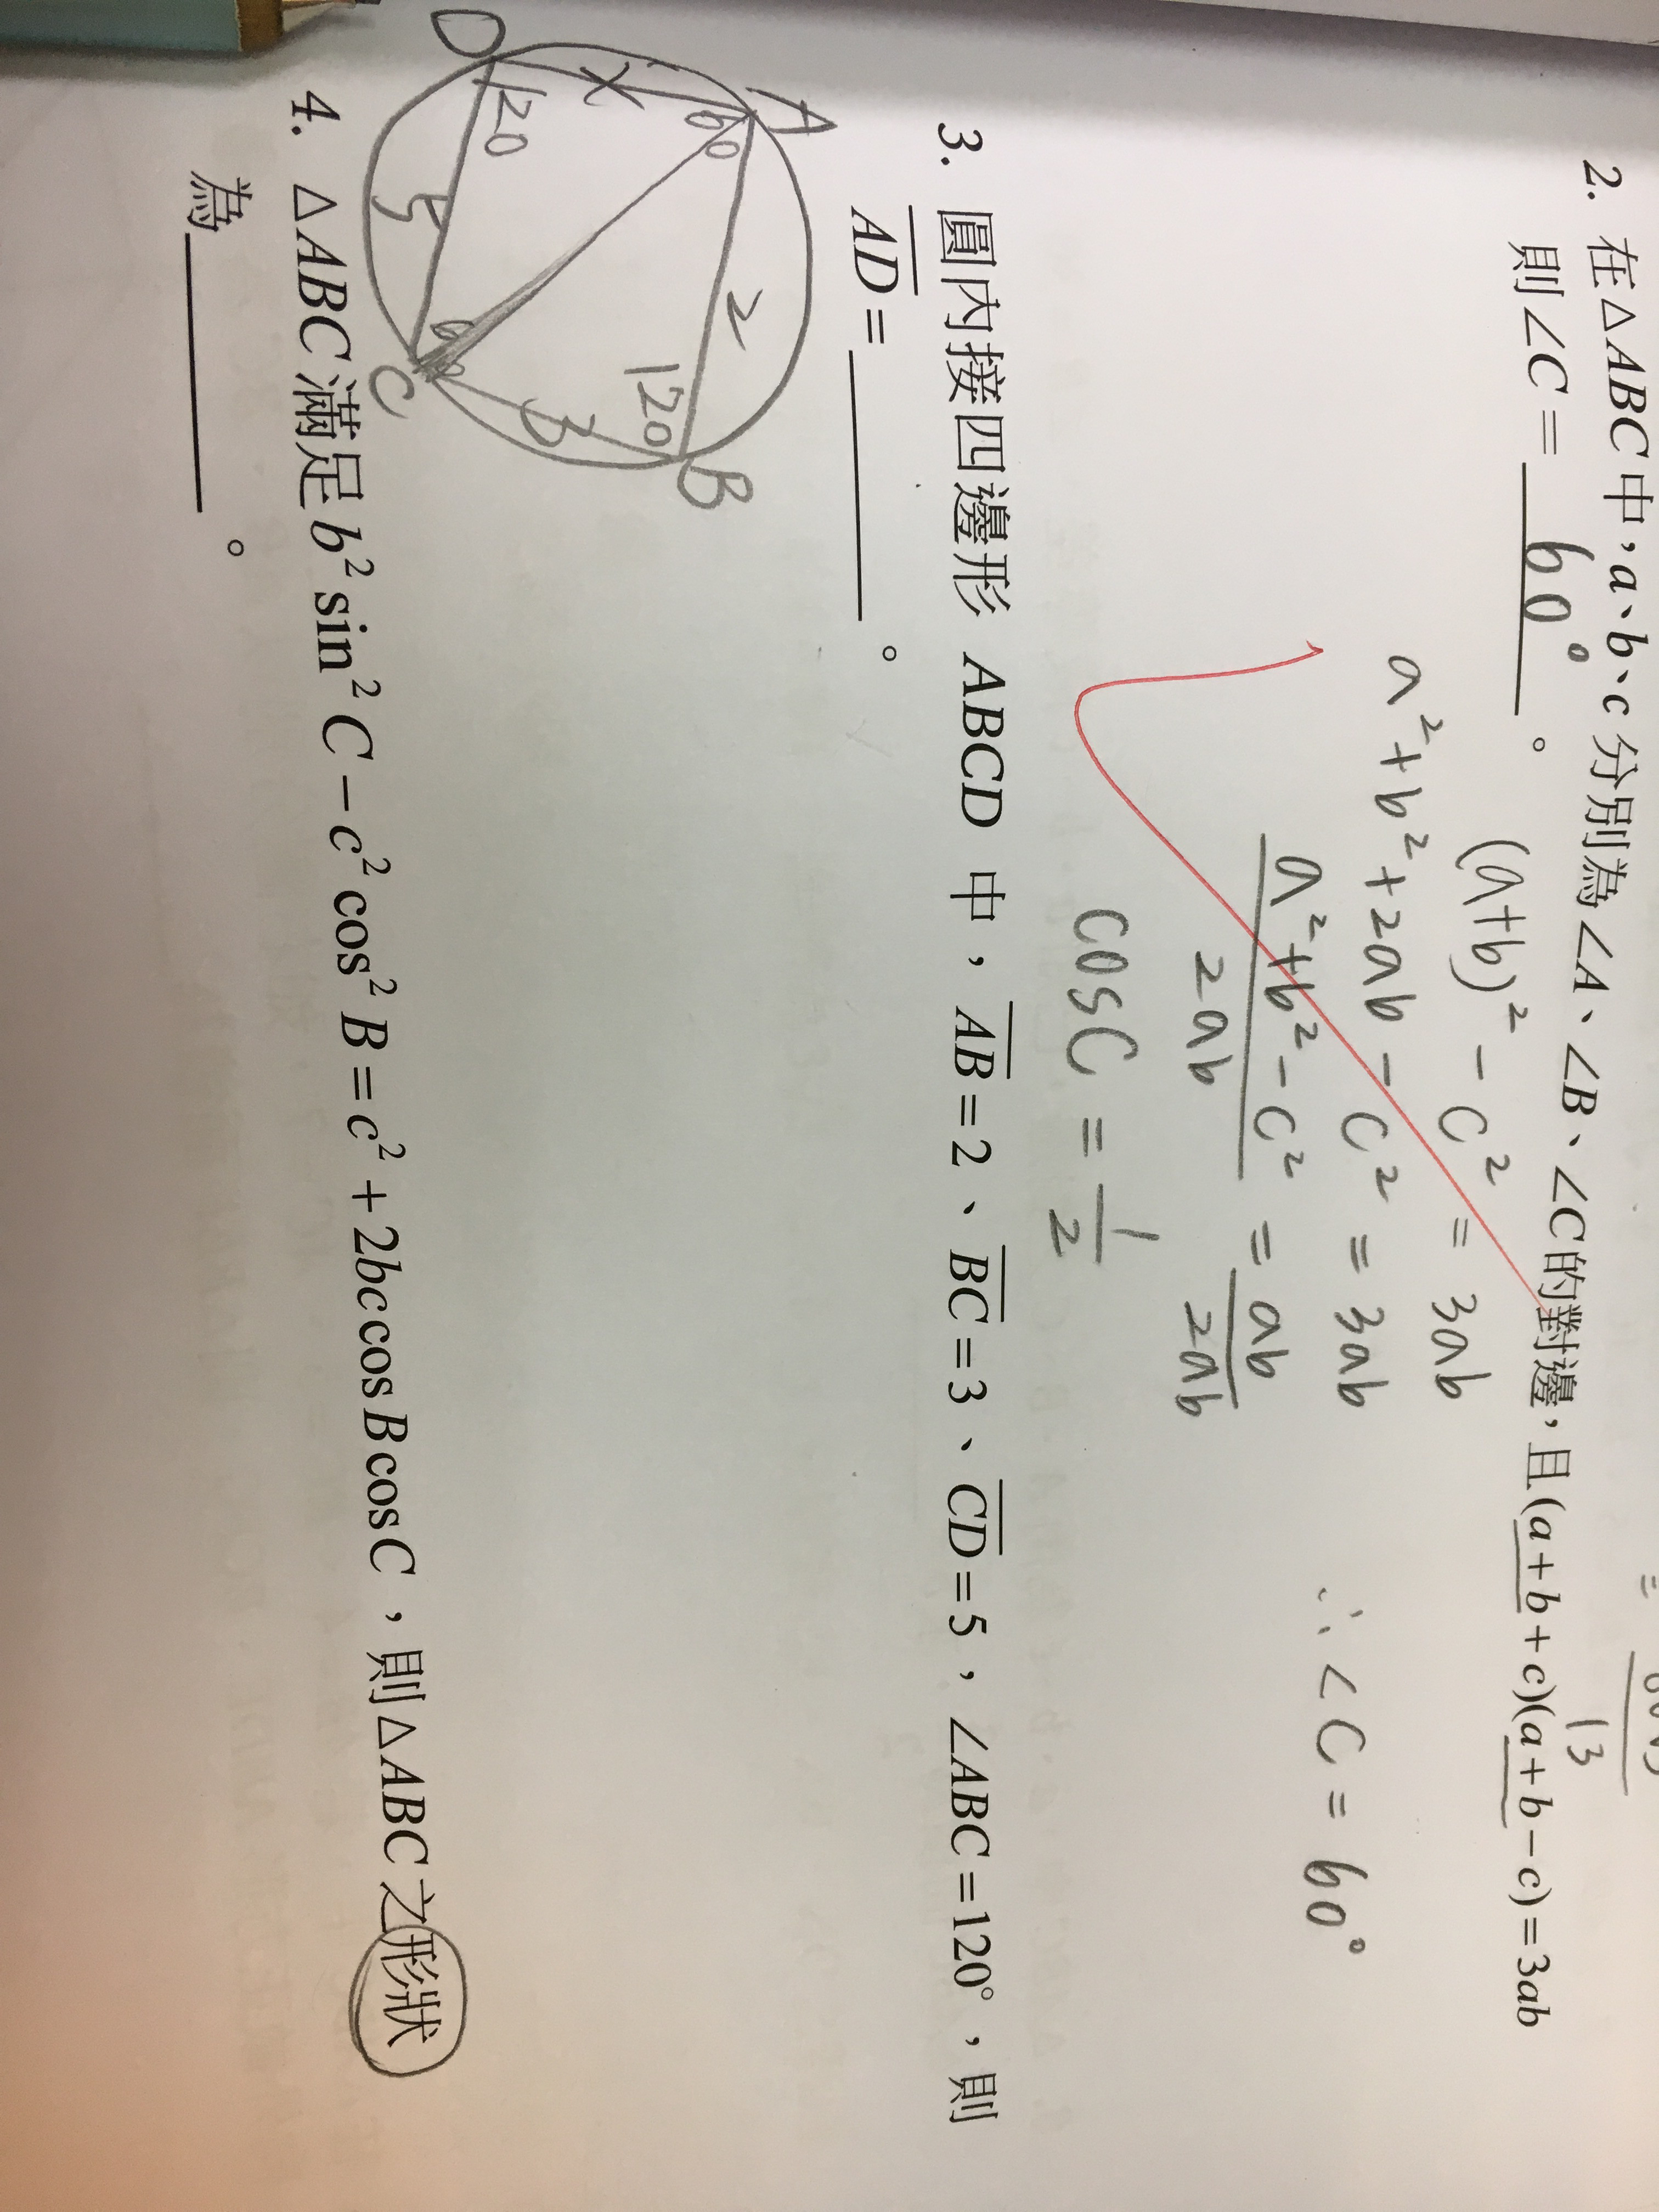 2. 在△ABC中,a、b、c分別為∠A、∠B、∠C的對邊,且(a+b+c)(a+b-c)=3ab
則∠C= 60° 。
13
(a+b)² - c² = 3ab
a²+b²+2ab - c² = 3ab
a²+b²-c² / 2ab = ab / 2ab
cosC = 1/2
∴ ∠C = 60°
3. 圓內接四邊形 ABCD 中,AB=2、BC=3、CD=5,∠ABC=120°,則
AD=________。
A
D
B
C
X
2
3
5
60
120
120
4. △ABC滿足b²sin²C-c²cos²B=c²+2bccosBcosC,則△ABC之形狀
為________。